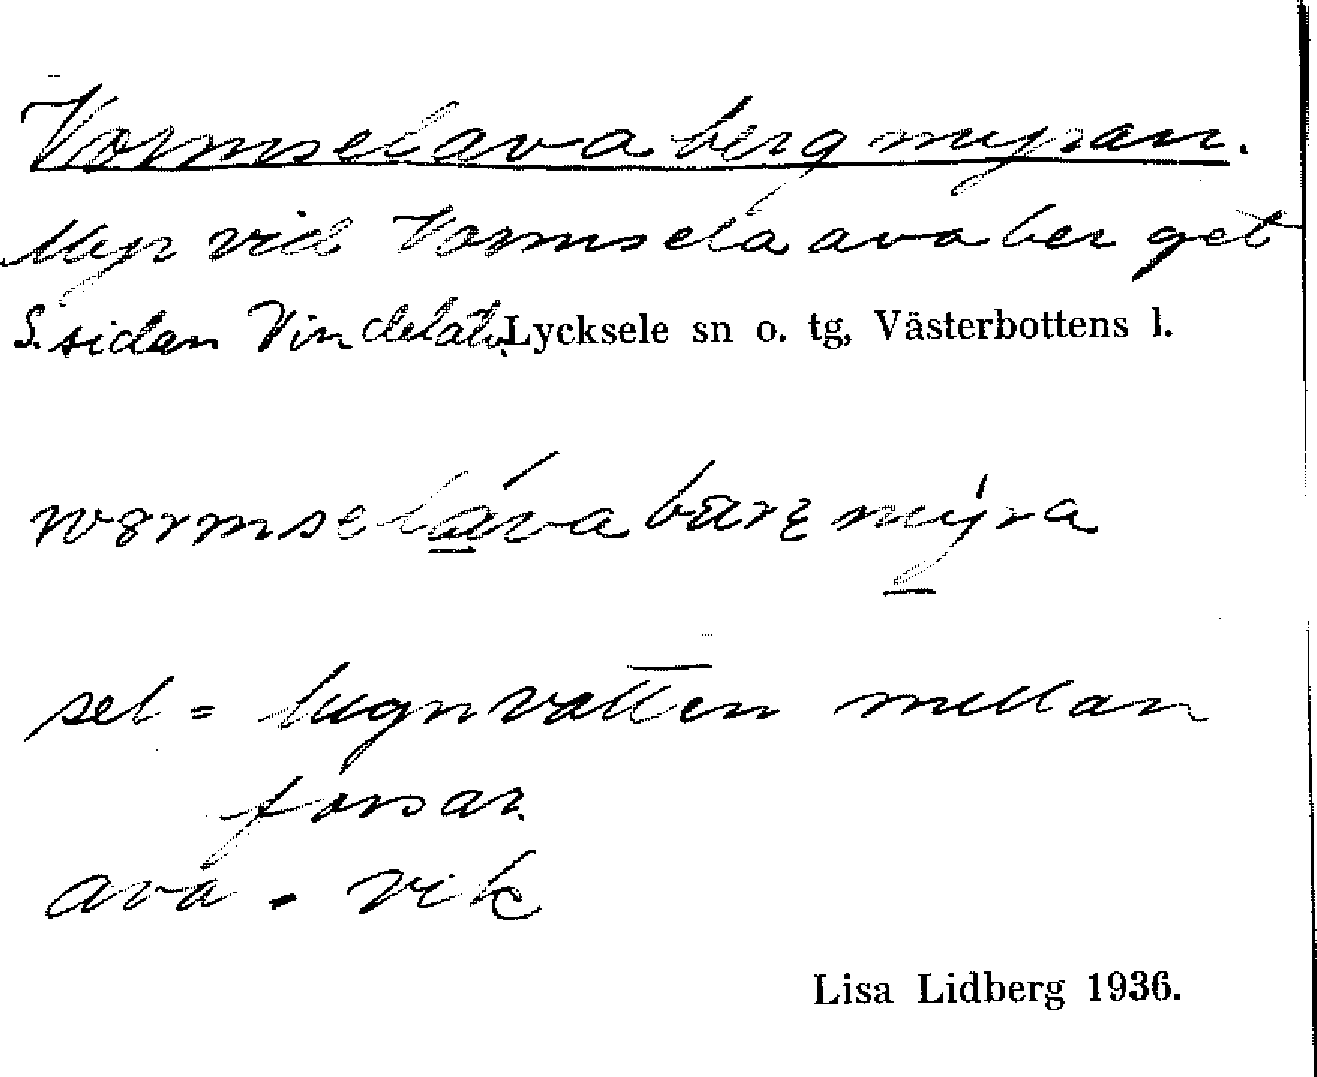 Vormselavabergmyran.
Myr vid Vormselaavaberget
S. sidan Vindelälv. Lycksele sn o. tg, Västerbottens l.
sel = lugnvatten mellan
forsar.
ava = vik
Lisa Lidberg 1936.